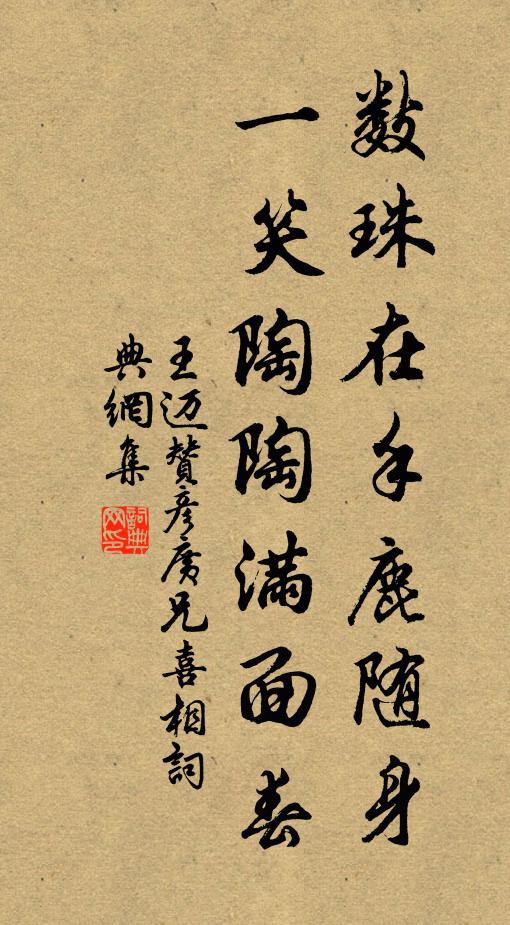 数珠在手鹿随身
一笑陶陶满面春
王迈赞彦广兄喜相詞
典網集
詞典網印